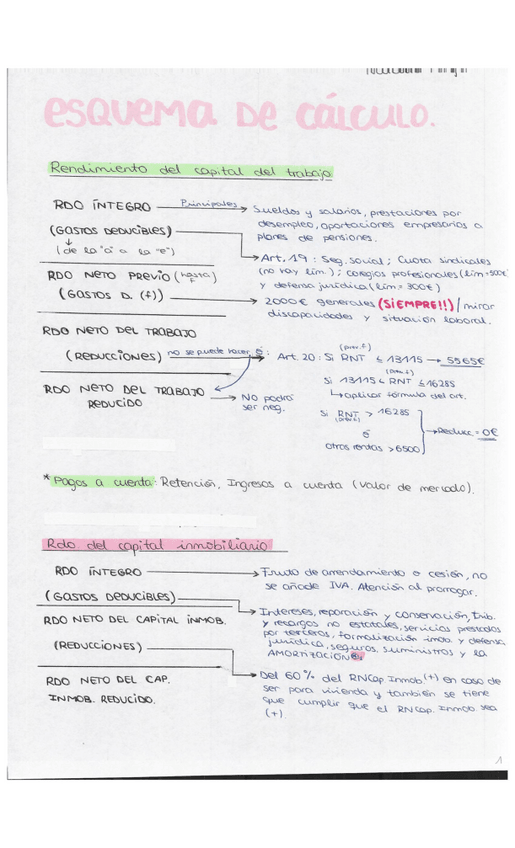 ESQUEMA DE CÁLCULO.
Rendimiento del capital del trabajo
RDO ÍNTEGRO Principales Sueldos y salarios, prestaciones por
desempleo, aportaciones empresarios a
planes de pensiones.
(GASTOS DEDUCIBLES)
(de la "a" a la "e")
Art. 19: Seg. social; Cuota sindicales
(no hay lím.); colegios profesionales (lím=500€)
y defensa jurídica (lím = 300€)
RDO NETO PREVIO (hasta
(GASTOS D. (f)) 2000€ generales (SIEMPRE!!) / mirar
discapacidades y situación laboral.
RDO NETO DEL TRABAJO
(REDUCCIONES) no se puede hacer
Art. 20: Si RNT ≤ 13115 → 5565€
Si 13115 ≤ RNT ≤ 16285
aplicar fórmula del art.
RDO NETO DEL TRABAJO
REDUCIDO
No podrá
ser neg.
Si RNT > 16285
ó
otras rentas > 6500
Reducc = 0€
* Pagos a cuenta: Retención, Ingresos a cuenta (valor de mercado).
Rdo. del capital inmobiliario
RDO ÍNTEGRO Fruto de arrendamiento o cesión, no
se añade IVA. Atención al prorrogar.
(GASTOS DEDUCIBLES)
Intereses, reparación y conservación, trib.
y recargos no estatales, servicios prestados
por terceros, formalización inmob. y defensa
jurídica, seguros, suministros y la
AMORTIZACIÓN
RDO NETO DEL CAPITAL INMOB.
(REDUCCIONES)
RDO NETO DEL CAP.
INMOB. REDUCIDO.
Del 60% del RNCap Inmob. (+) en caso de
ser para vivienda y también se tiene
que cumplir que el RNCap. Inmob sea
(+).
1